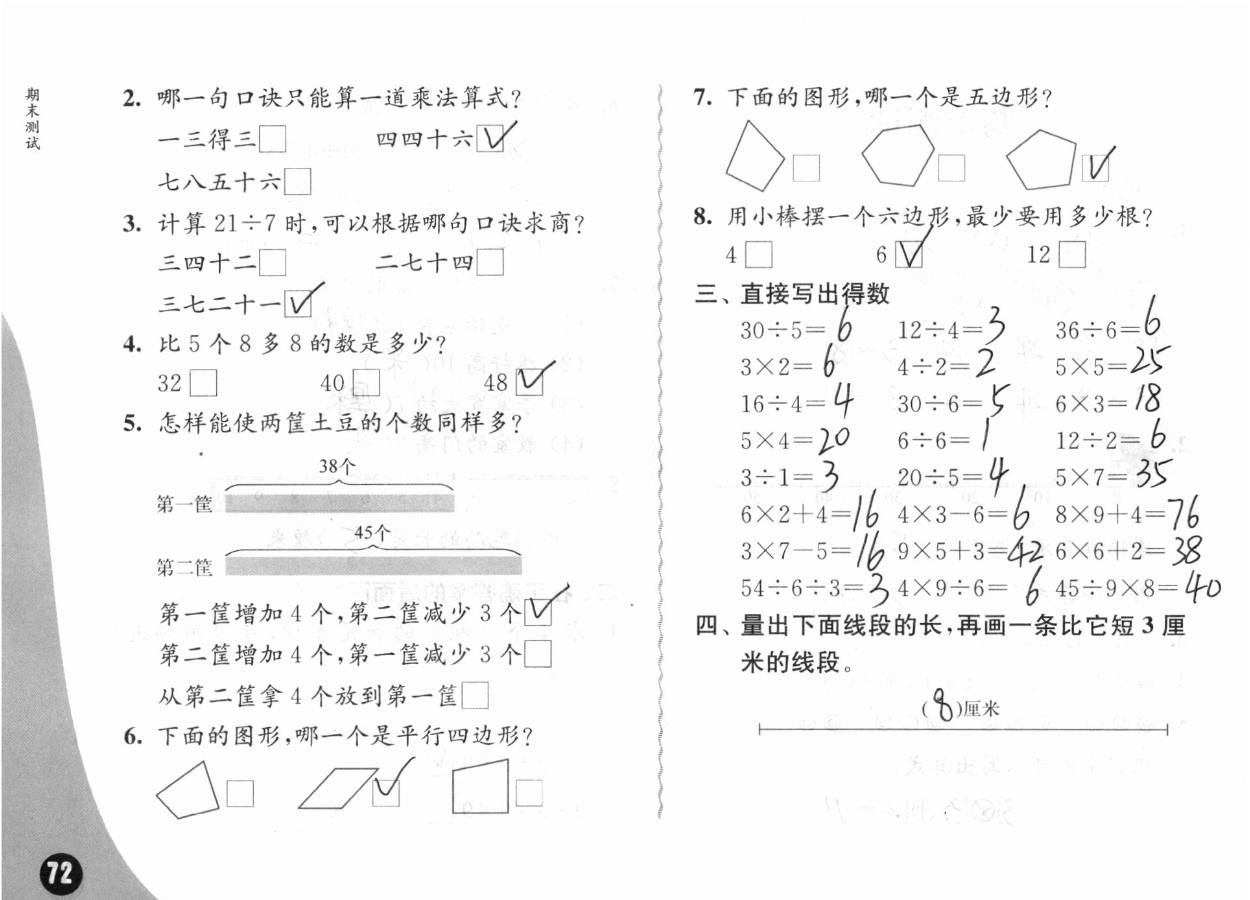 期末测试
2. 哪一句口诀只能算一道乘法算式?
一三得三□ 四四十六☑
七八五十六□
3. 计算 21÷7 时,可以根据哪句口诀求商?
三四十二□ 二七十四□
三七二十一☑
4. 比 5 个 8 多 8 的数是多少?
32□ 40□ 48☑
5. 怎样能使两筐土豆的个数同样多?
38个
第一筐
45个
第二筐
第一筐增加 4 个,第二筐减少 3 个☑
第二筐增加 4 个,第一筐减少 3 个□
从第二筐拿 4 个放到第一筐□
6. 下面的图形,哪一个是平行四边形?
□ ☑ □
72
7. 下面的图形,哪一个是五边形?
□ □ ☑
8. 用小棒摆一个六边形,最少要用多少根?
4□ 6☑ 12□
三、直接写出得数
30÷5=6 12÷4=3 36÷6=6
3×2=6 4÷2=2 5×5=25
16÷4=4 30÷6=5 6×3=18
5×4=20 6÷6=1 12÷2=6
3÷1=3 20÷5=4 5×7=35
6×2+4=16 4×3-6=6 8×9+4=76
3×7-5=16 9×5+3=42 6×6+2=38
54÷6÷3=3 4×9÷6=6 45÷9×8=40
四、量出下面线段的长,再画一条比它短 3 厘
米的线段。
(8)厘米